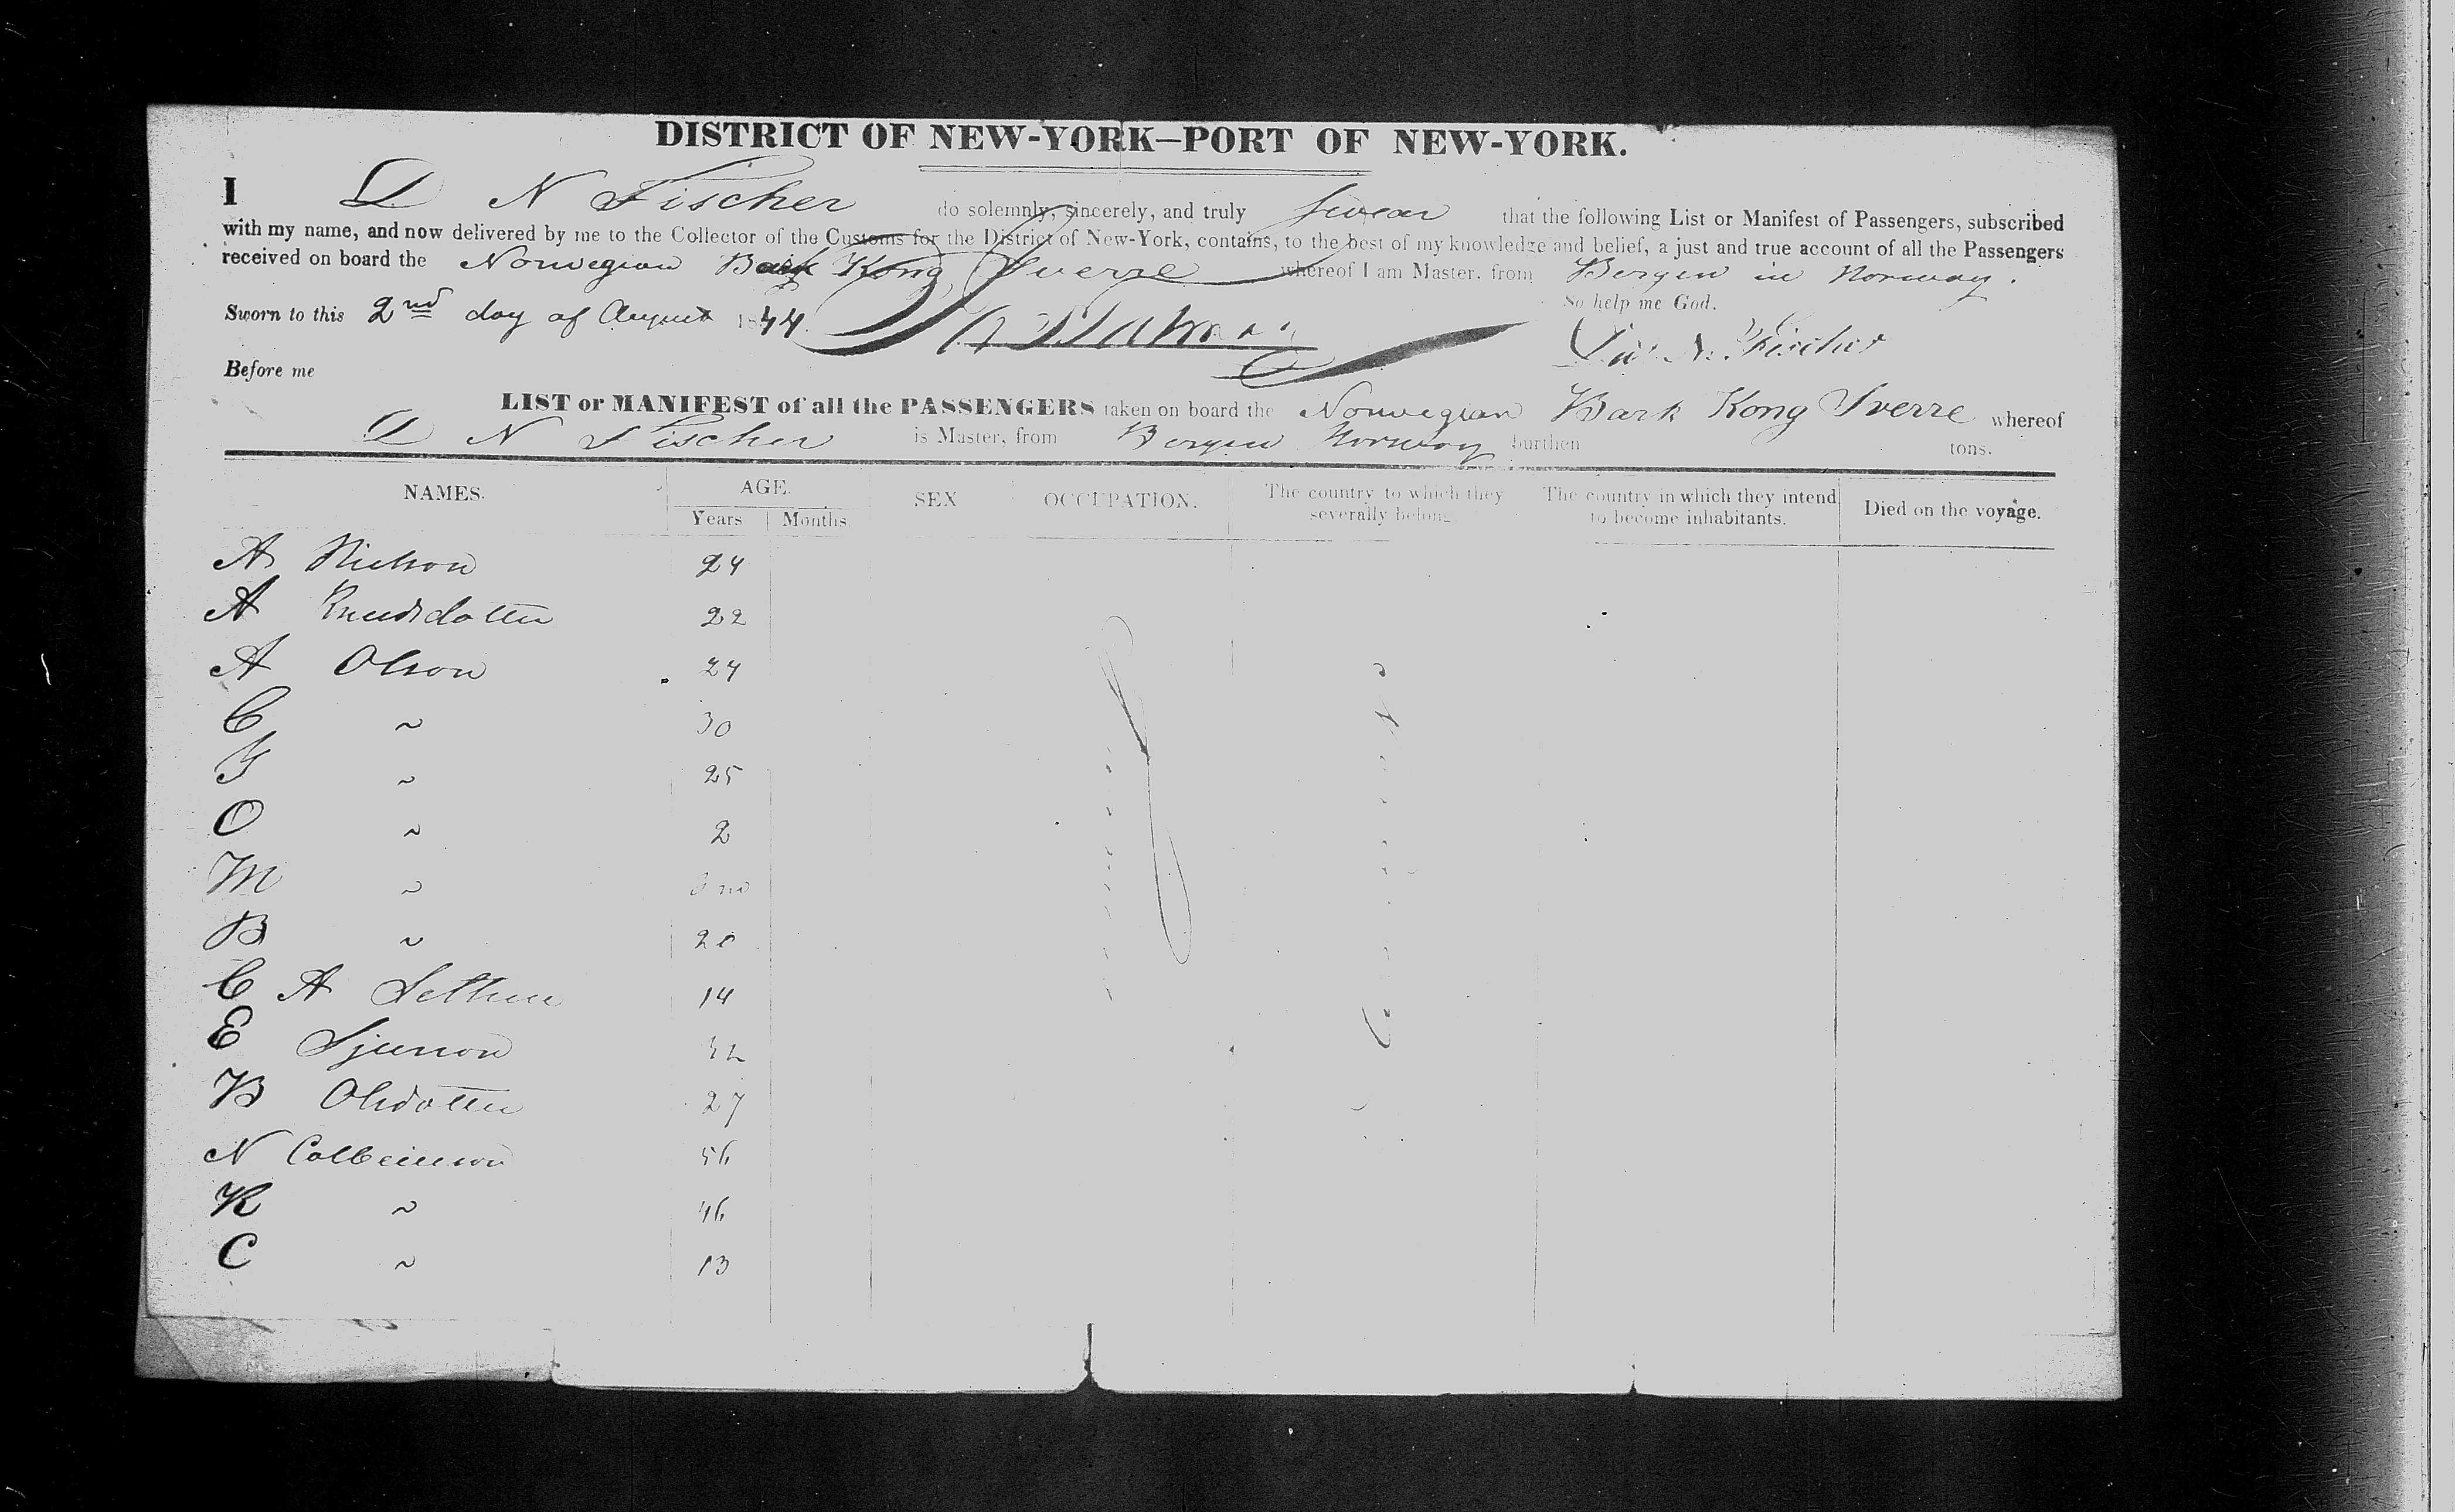 DISTRICT OF NEW-YORK—PORT OF NEW-YORK.
I D N Fischer do solemnly, sincerely, and truly swear that the following List or Manifest of Passengers, subscribed
with my name, and now delivered by me to the Collector of the Customs for the District of New-York, contains, to the best of my knowledge and belief, a just and true account of all the Passengers
received on board the Norwegian Bark Kong Sverre whereof I am Master, from Bergen in Norway.
So help me God.
Sworn to this 2nd day of August 1844.
N. Fischer
Before me
LIST or MANIFEST of all the PASSENGERS taken on board the Norwegian Bark Kong Sverre whereof
D N Fischer is Master, from Bergen Norway burthen tons.
NAMES. AGE. SEX OCCUPATION. The country to which they severally belong The country in which they intend to become inhabitants. Died on the voyage.
Years Months
A Nielson 24
A Knudsdatter 22
A Olson 24
C ~ 30
G ~ 25
O ~ 2
M ~
B ~ 20
C A 14
E Sjurson 32
B Olsdotter 27
N Colbeinson 56
K ~ 46
C ~ 13